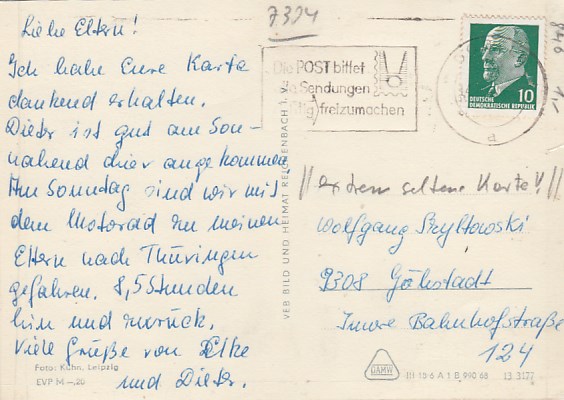 Liebe Eltern!
Ich habe Eure Karte
dankend erhalten.
Dieter ist gut am Son-
nabend hier angekommen
Am Sonntag sind wir mit
dem Motorrad zu meinen
Eltern nach Thüringen
gefahren. 8,5 Stunden
hin und zurück.
Viele Grüße von Elke
und Dieter.
Foto: Kühn, Leipzig
EVP M –,20
VEB BILD UND HEIMAT REICHENBACH I. V.
7324
Die POST bittet
Sendungen
freizumachen
10
DEUTSCHE
DEMOKRATISCHE REPUBLIK
a
1,-
//extrem seltene Karte!!//
Wolfgang
9308
Innere Bahnhofstraße
124
III 15-6 A 1 B 990 68 13 3177